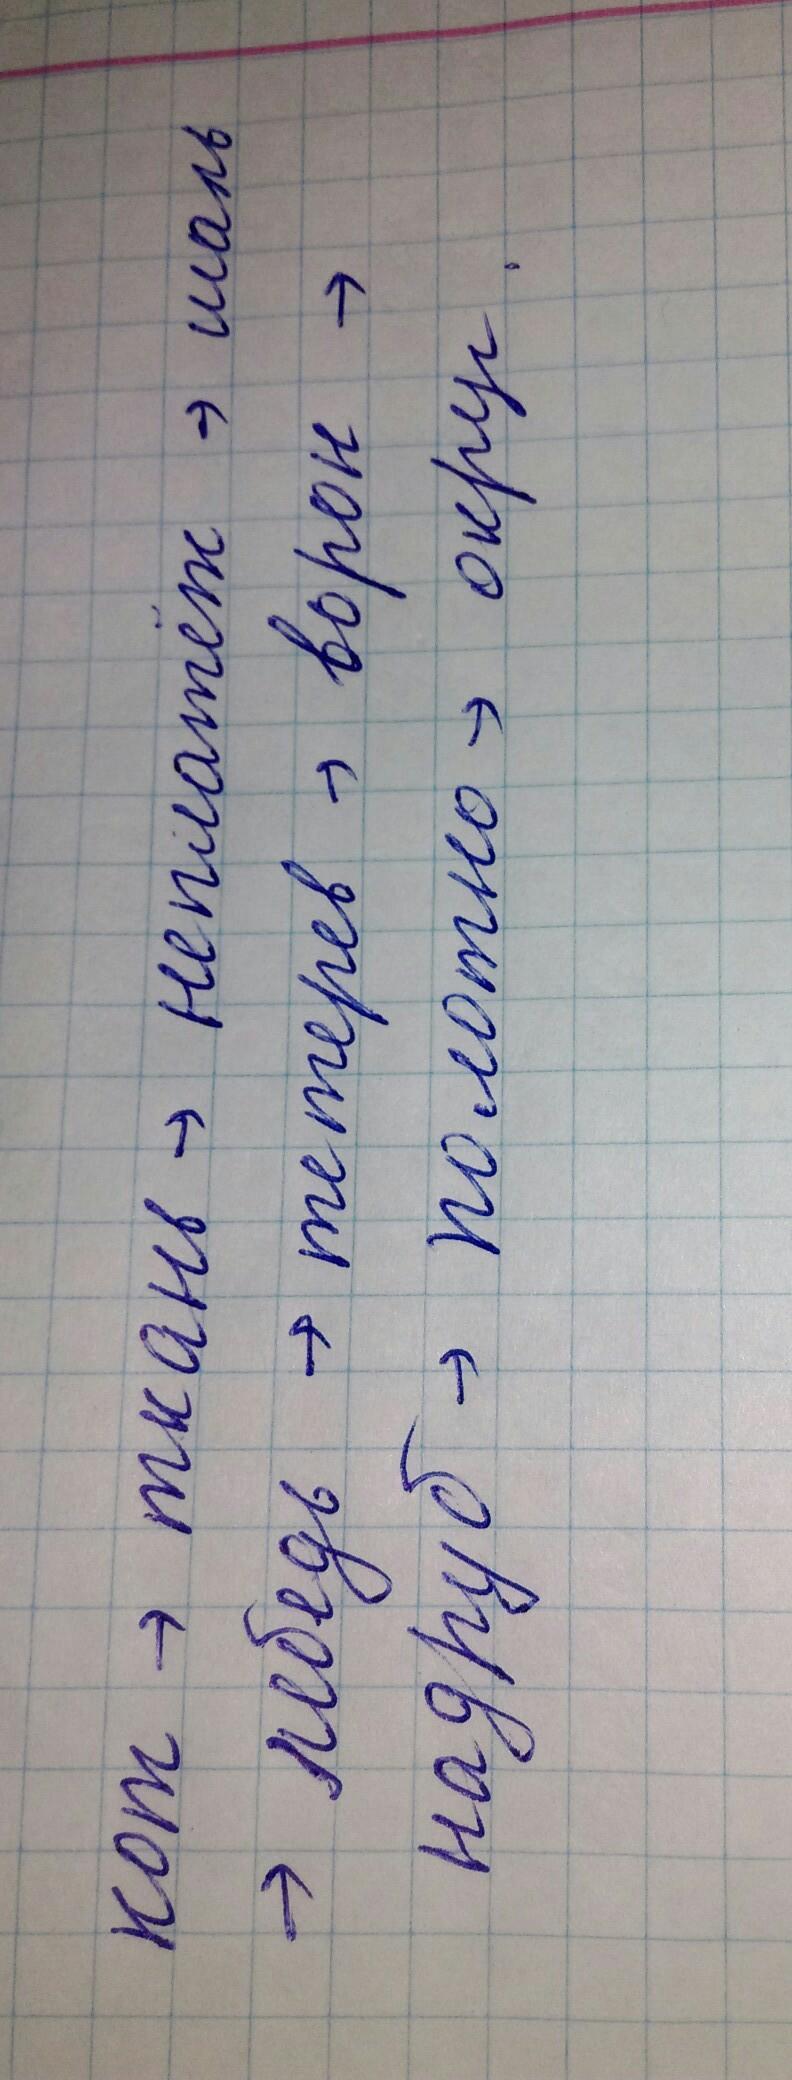 кот → ткань → неплатёж → шаль
→ лебедь → тетерев → ворон →
надруб → полотно → округ.